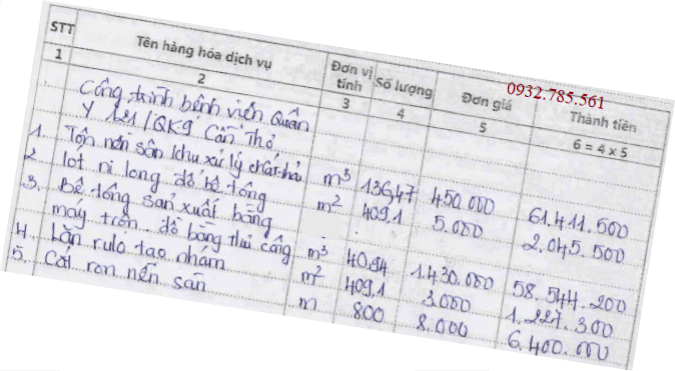 STT Tên hàng hóa dịch vụ Đơn vị tính Số lượng Đơn giá Thành tiền
0932.785.561
1 2 3 4 5 6 = 4 x 5
Công trình bệnh viện Quân
Y 121/QK9 Cần Thơ
1. Tôn nền sân khu xử lý chất thải m3 136,47 450.000 61.411.500
2 lót ni long đổ bê tông m2 409,1 5.000 2.045.500
3. Bê tông sản xuất bằng
máy trộn đổ bằng thủ công m3 40,94 1.430.000 58.544.200
4. Lăn rulo tạo nhám m2 409,1 3.000 1.227.300
5. Cắt ron nền sân m 800 8.000 6.400.000